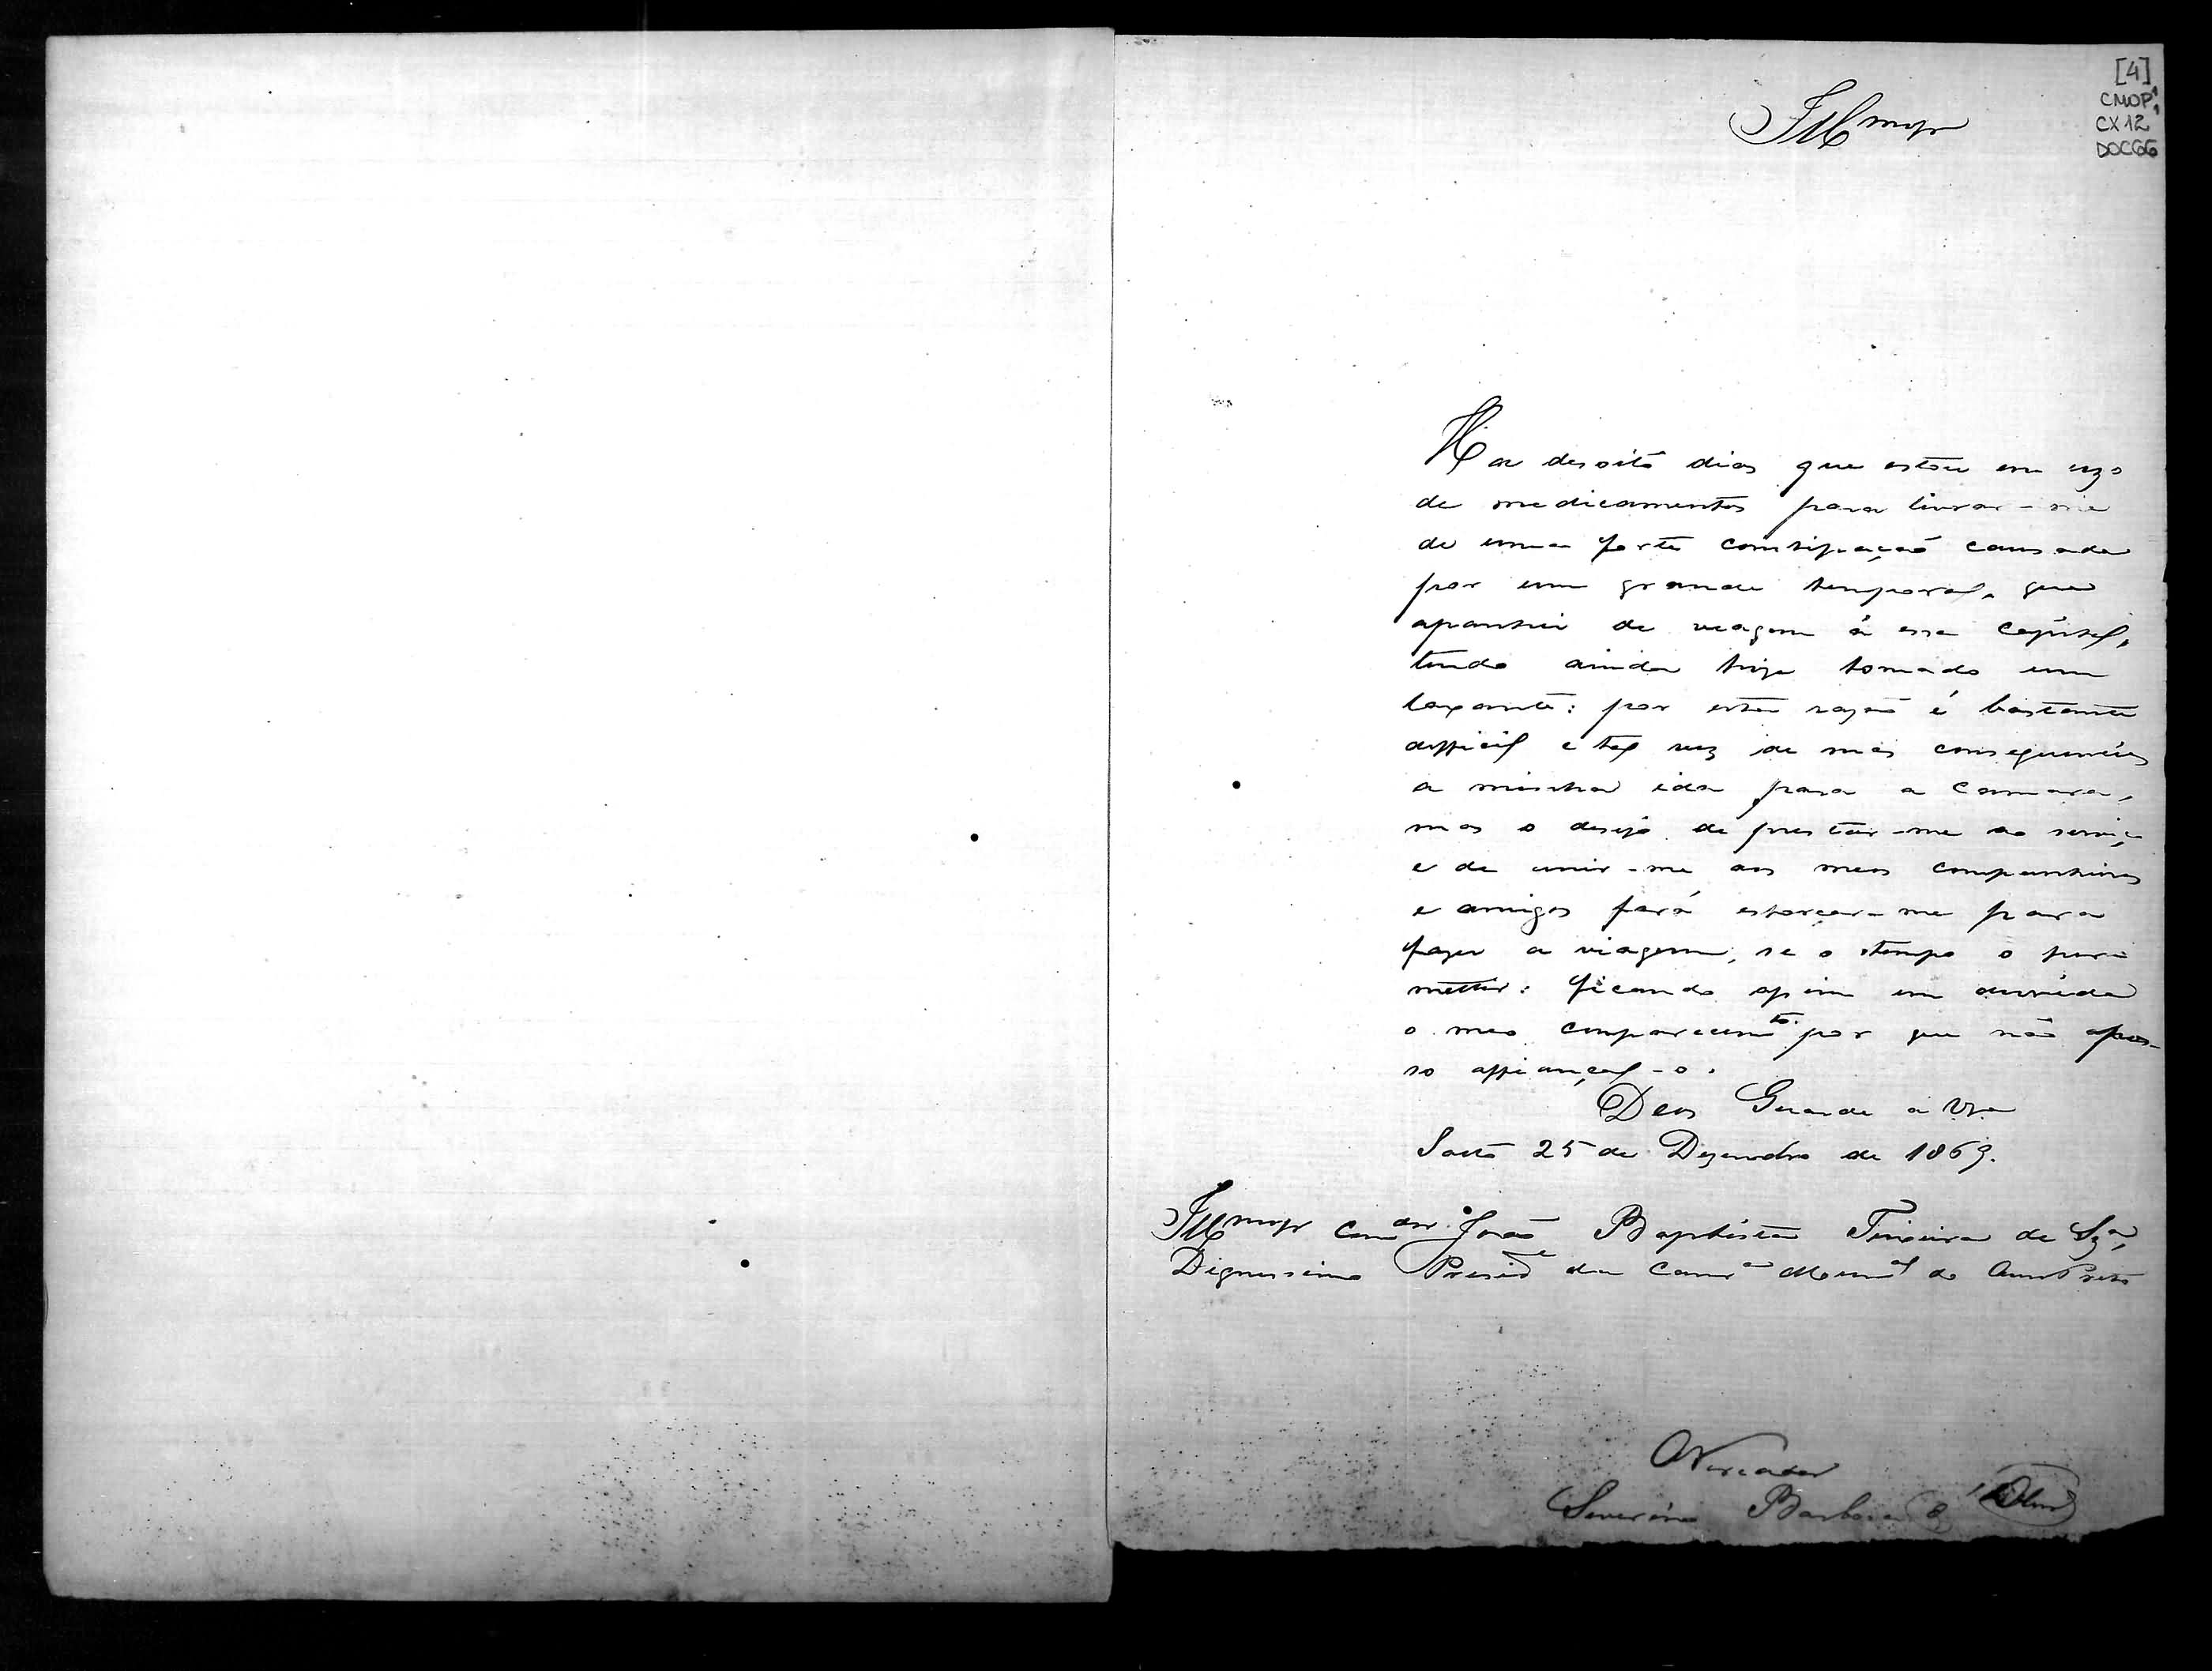 [4]
CMOP 1,1
CX 12
DOC 66
Illmo Sr
Ha desoito dias que estou em uzo
de medicamentos para livrar-me
de uma forte constipação causada
por um grande temporal, que
apanhei de viagem á essa Capital,
tendo ainda hoje tomado um
laxante: por esta rasão é bastante
difficil e tal vez de más consequencias
a minha ida para a Camara,
mas o desejo de prestar-me ao serviço
e de unir-me aos meos companheiros
e amigos fará esforçar-me para
fazer a viagem, se o tempo o per-
mettir: ficando assim em duvida
o meo comparecimto. por que não pos-
so affiançal-o.
Deos Guarde a VSa
25 de Dezembro de 1869.
Illmo Sr Comdor João Baptista Teixeira de Sza,
Dignissimo Preside da Camra Municipal do Ouro Preto
O Vereador
Severino Barbosa